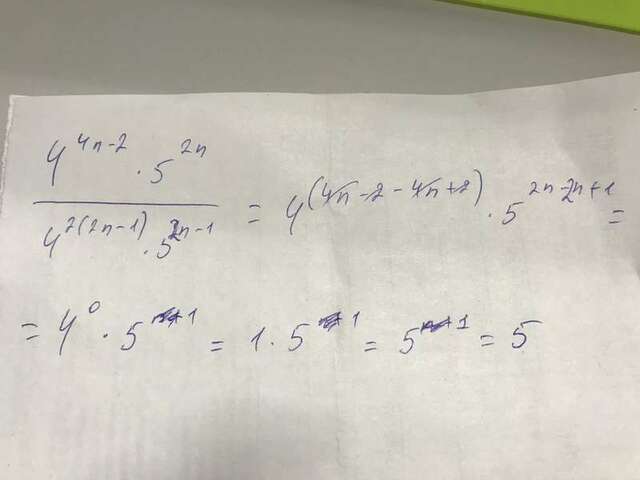 4^{4n-2} · 5^{2n} / 4^{2(2n-1)} · 5^{2n-1} = 4^{(4n-2-4n+2)} · 5^{2n-2n+1} =
= 4^0 · 5^1 = 1 · 5^1 = 5^1 = 5